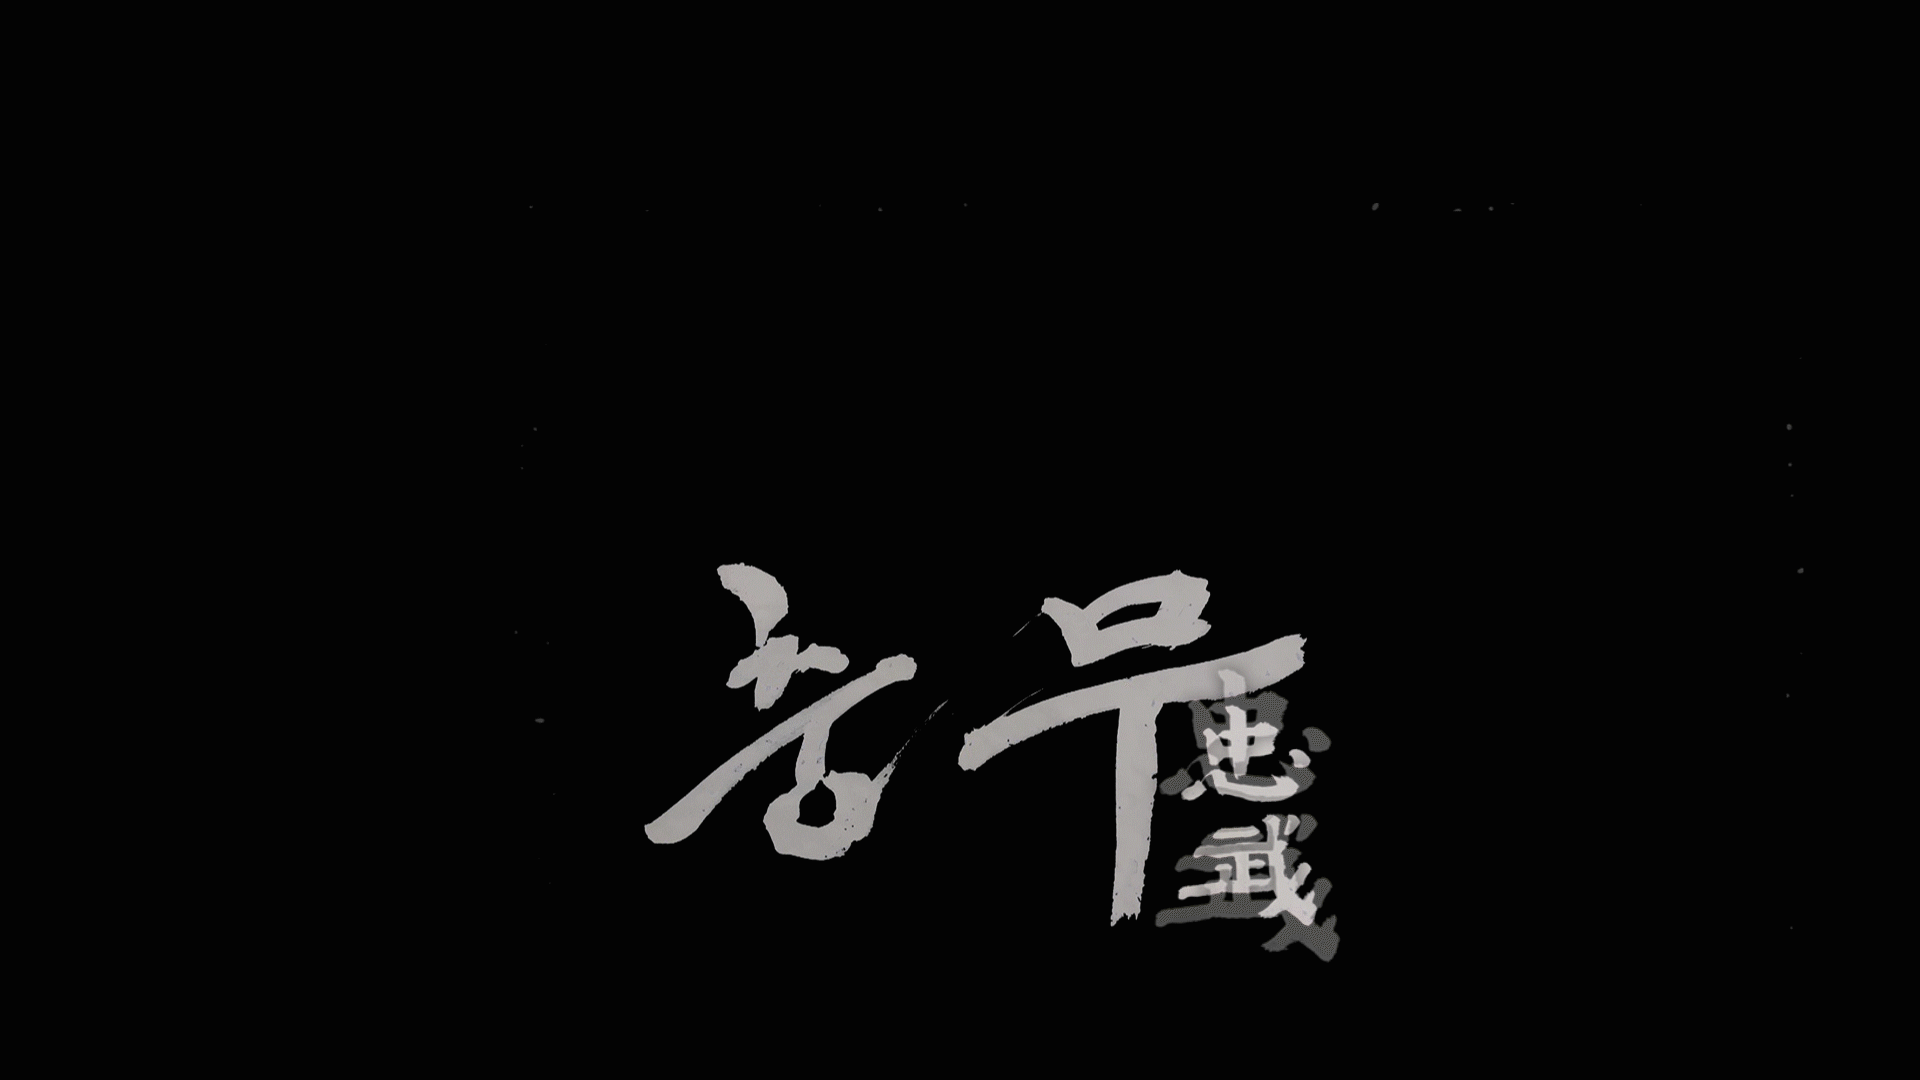 충무
忠武